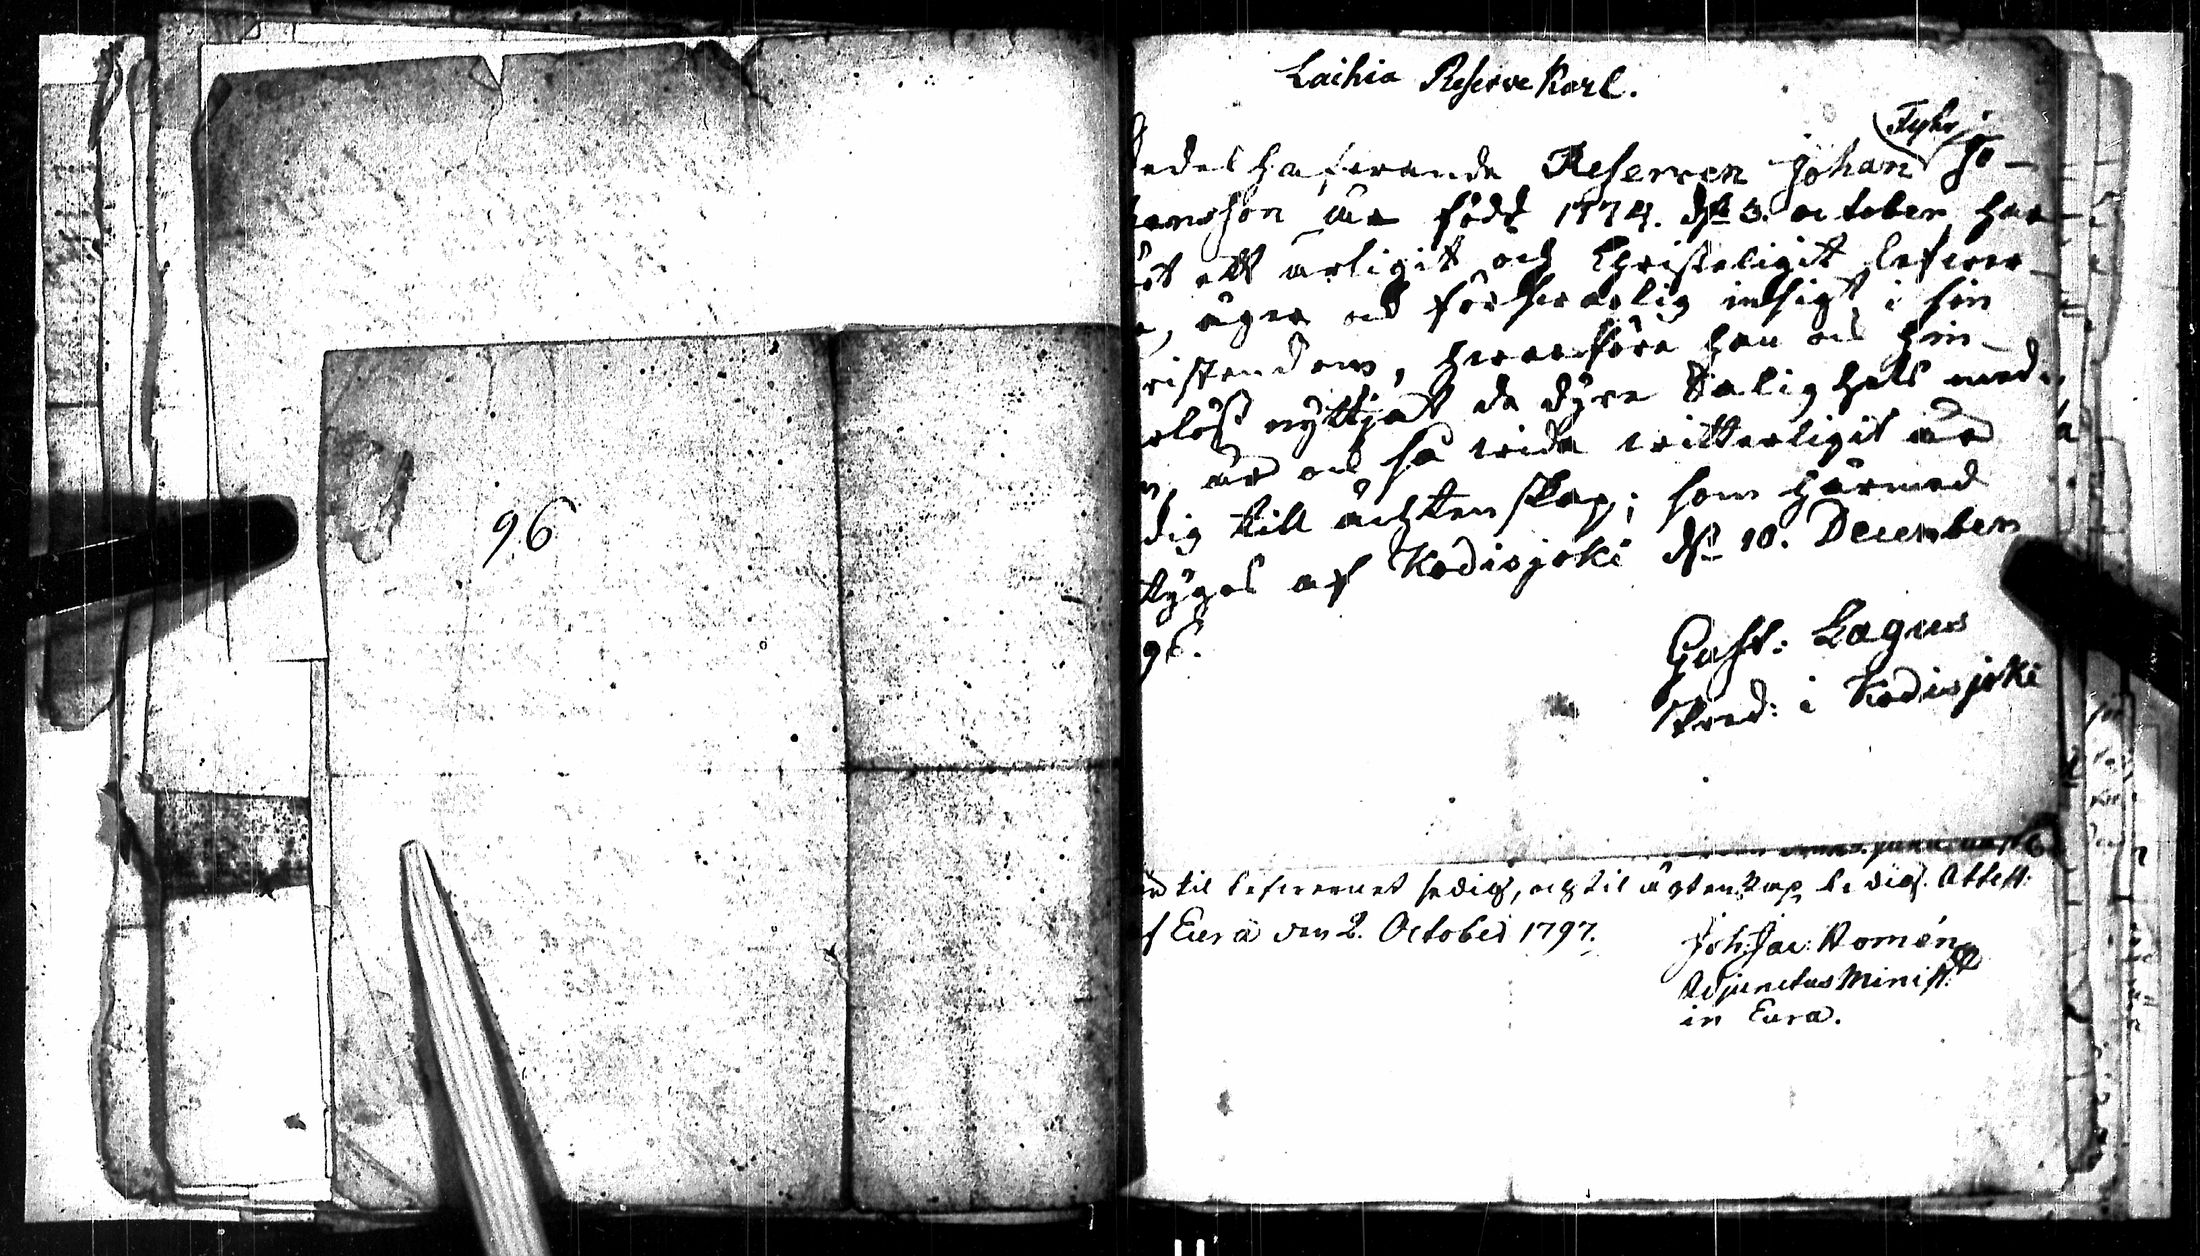 96
Laihia Reserve Karl.
Tyko
edelhafwande Reserven Johan Jo-
hansson är född 1774. d. 3. october har
ett ärligit och Christeligit lefwer-
äger ock förswarlig insigt i sin
ristendom, hwarföre han ock hin-
erlöst nyttjat de dyre Salighets med-
är ock så wida witterligit är
dig till ächtenskap; som härmed
tygas af Kodisjoki d. 10. December
96.
Gust: Lagus
Pred: i Kodisjoki
til lefwernet sedig, och til ägtenskap ledig. Attest:
f Eura den 2. October 1797.
Joh: Jac: Romén
Adjunctus Minist:
in Eura.